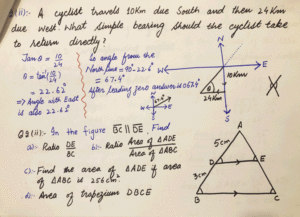 (ii):- A cyclist travels 10Km due South and then 24 Km
due west. What simple bearing should the cyclist take
to return directly?
Tan θ = 10/24
θ = tan⁻¹(10/24)
= 22.62°
⇒ Angle with East
is also 22.6°
So angle from the
North line = 90-22.6°
= 67.4°
After leading zero answer is 067.4°
N
W
E
S
10Km
24Km
θ
Q3(ii):- In the figure BC || DE. Find
a):- Ratio DE/BC
b):- Ratio Area of △ADE/Area of △ABC
c):- Find the area of △ADE if area
of △ABC is 256cm².
d):- Area of Trapezium DBCE
A
5cm
D
E
3cm
B
C